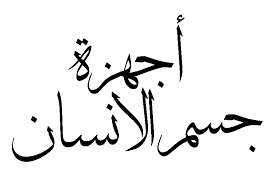 أجهزة
جسم الانسان